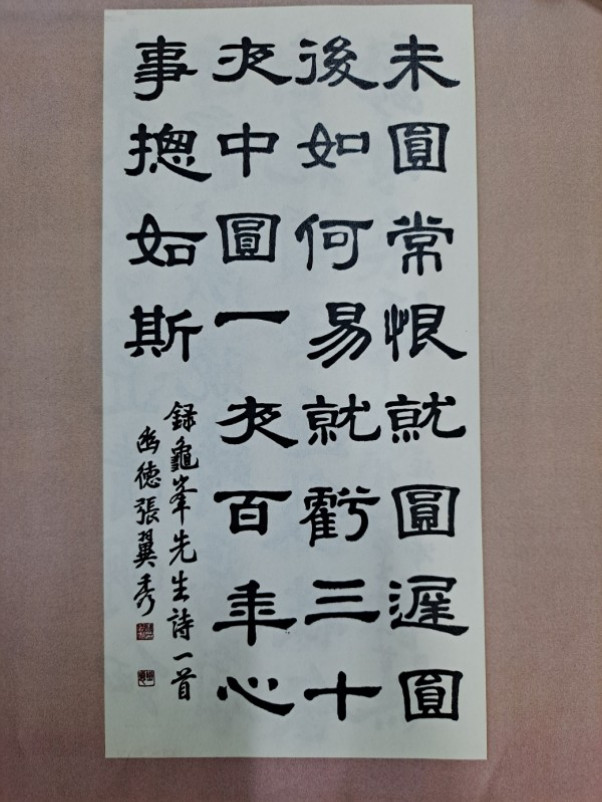 未圓常恨就圓遲圓
後如何易就虧三十
夜中圓一夜百年心
事摠如斯
錄龜峯先生詩一首
幽德張翼秀